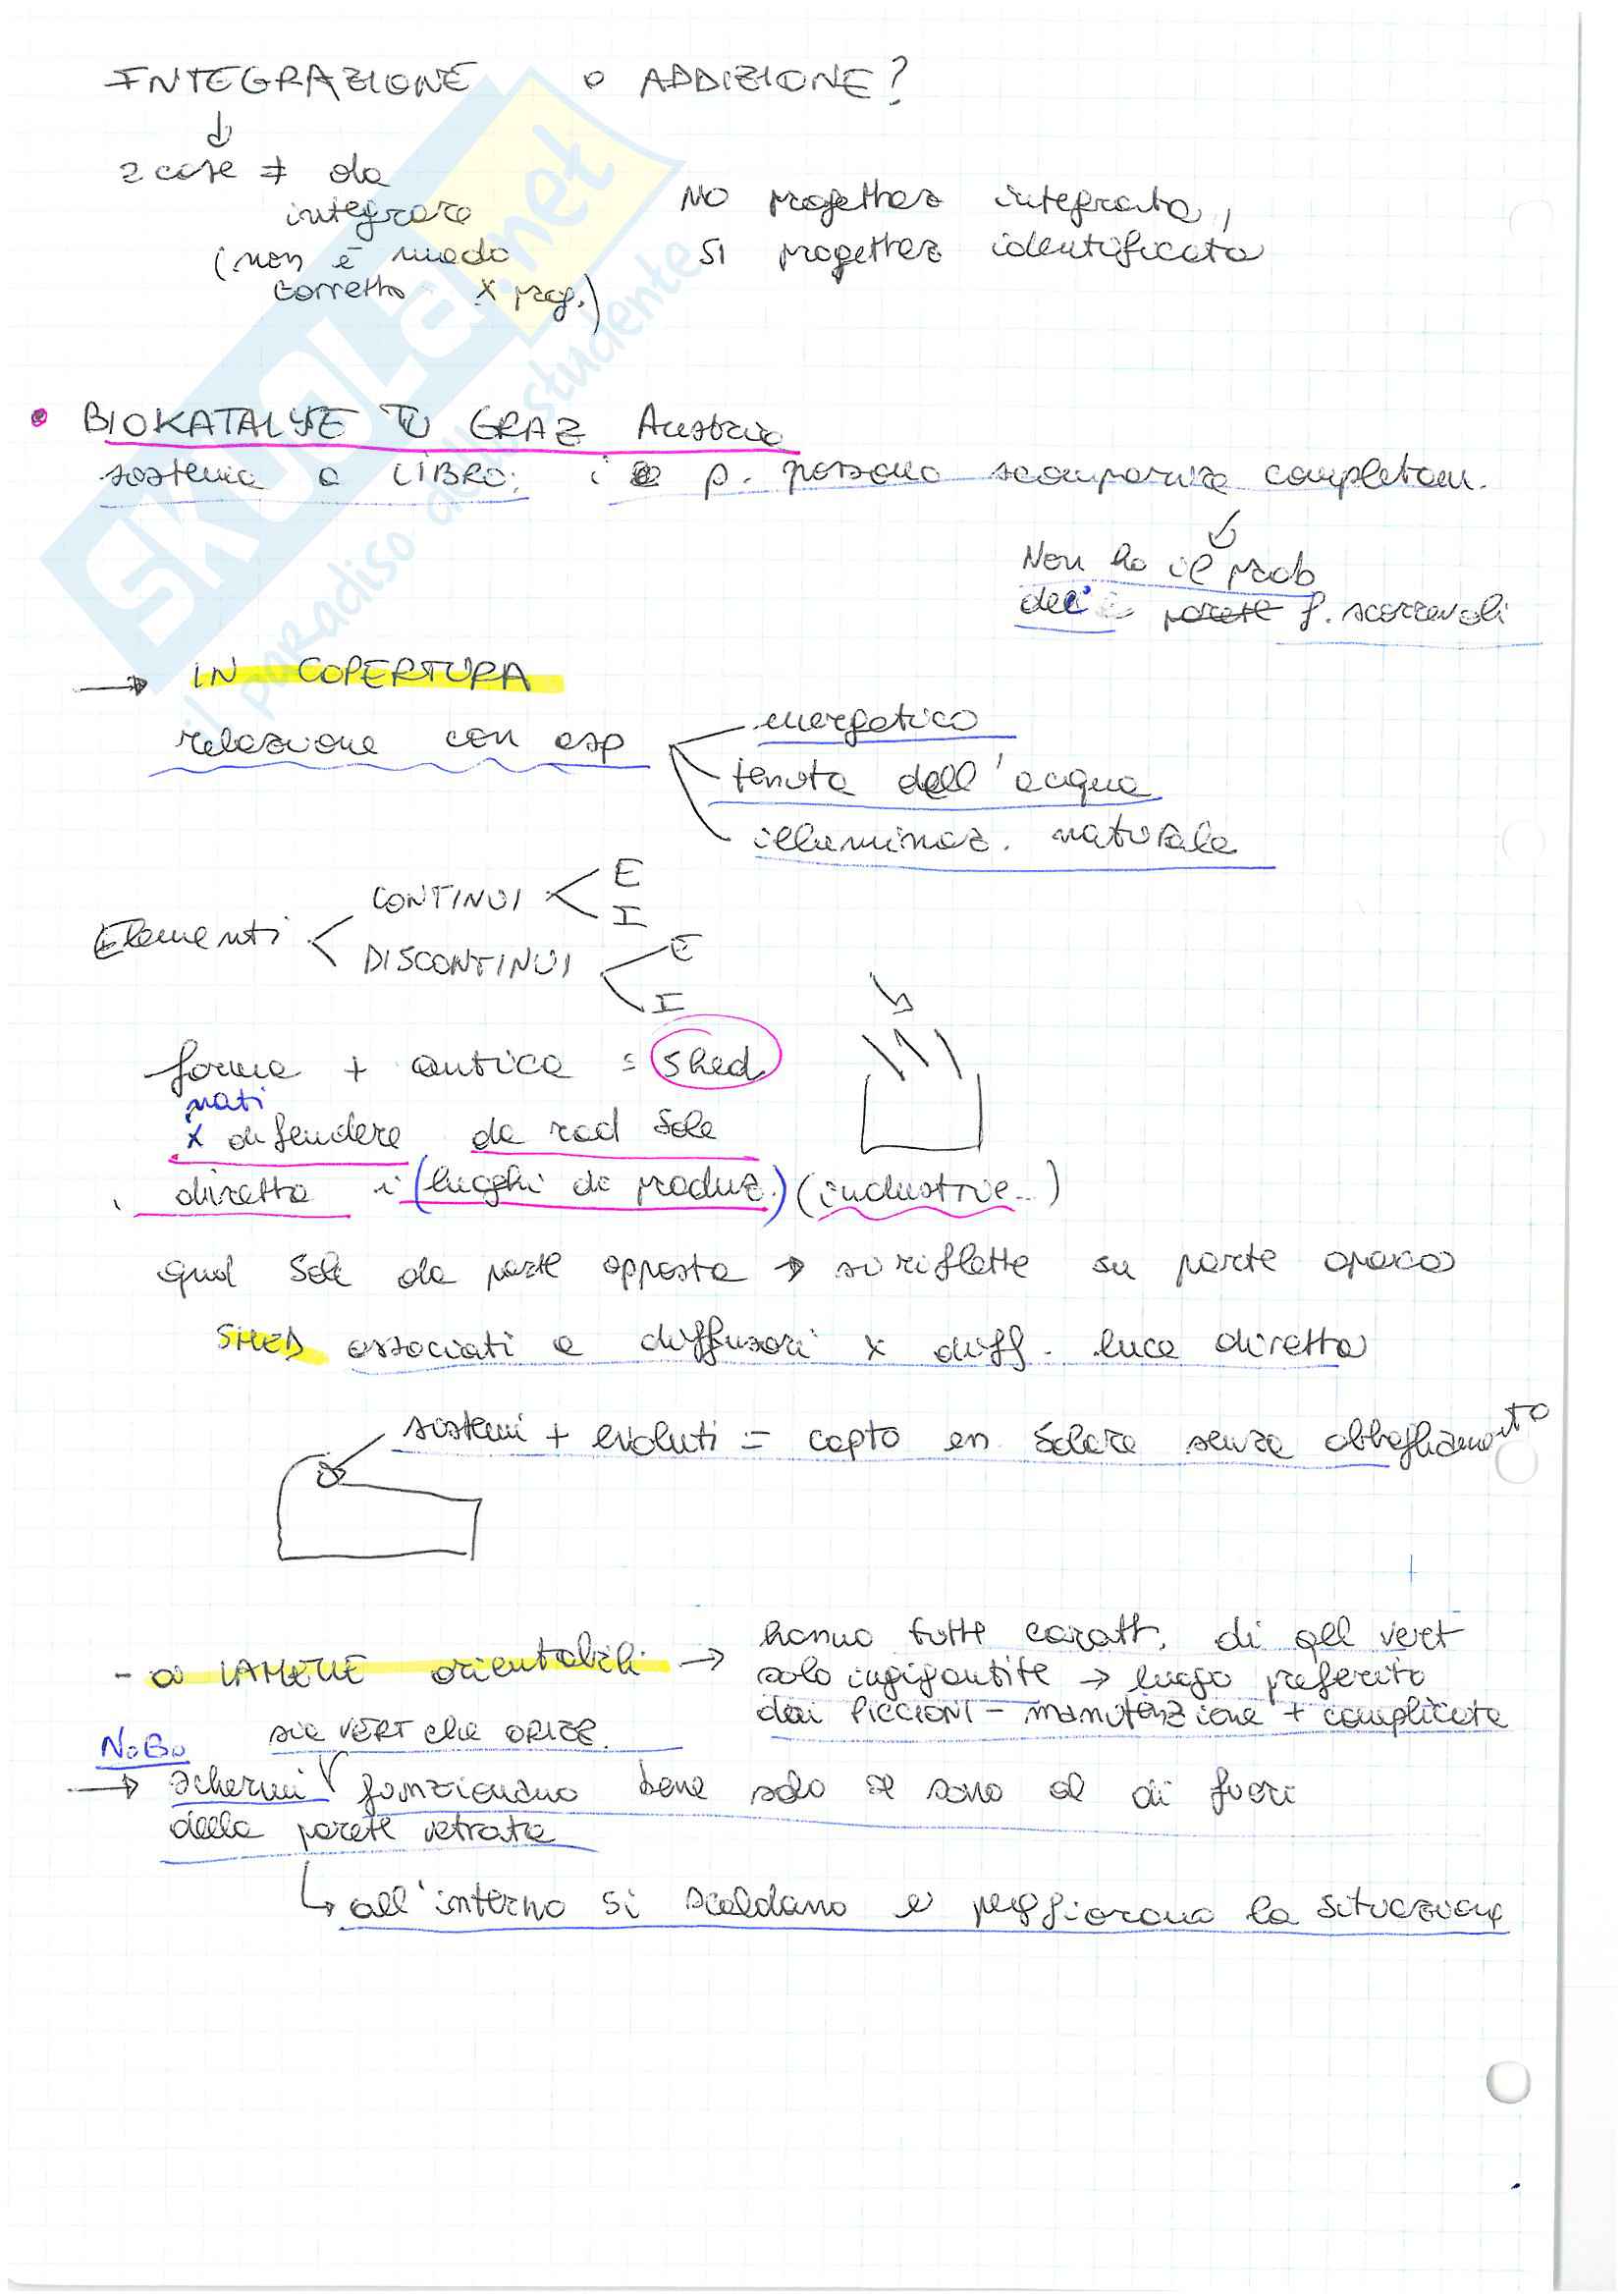 INTEGRAZIONE o ADDIZIONE?
2 cose ≠ da
integrare
(non è modo
corretto x prog.)
NO progettaz integrata,
SI progettaz identificata
• BIOKATALYSE TU GRAZ Austria
sistema a LIBRO: i p. possono scomparire completam.
Non ho il prob
dell' parete f. scorrevoli
→ IN COPERTURA
relazione con asp
energetico
tenuta dell'acqua
illuminaz. naturale
Elementi
CONTINUI
E
I
DISCONTINUI
E
I
forma + antica = shed
nati
x difendere da rad sole
diretta i (luoghi di produz.) (industrie..)
sole da parte opposta → si riflette su parte opaca
SHED associati a diffusori x diff. luce diretta
sistemi + evoluti = capto en solare senza abbagliamento
- a LAMELLE orientabili → hanno tutte caratt. di qll vert
solo ingigantite → luogo preferito
dai PICCIONI - manutenzione + complicata
sia VERT che ORIZZ.
N.B.
→ schermi funzionano bene solo se sono al di fuori
della parete vetrata
↳ all'interno si scaldano e peggiorano la situazione
skuola.net
il paradiso dello studente